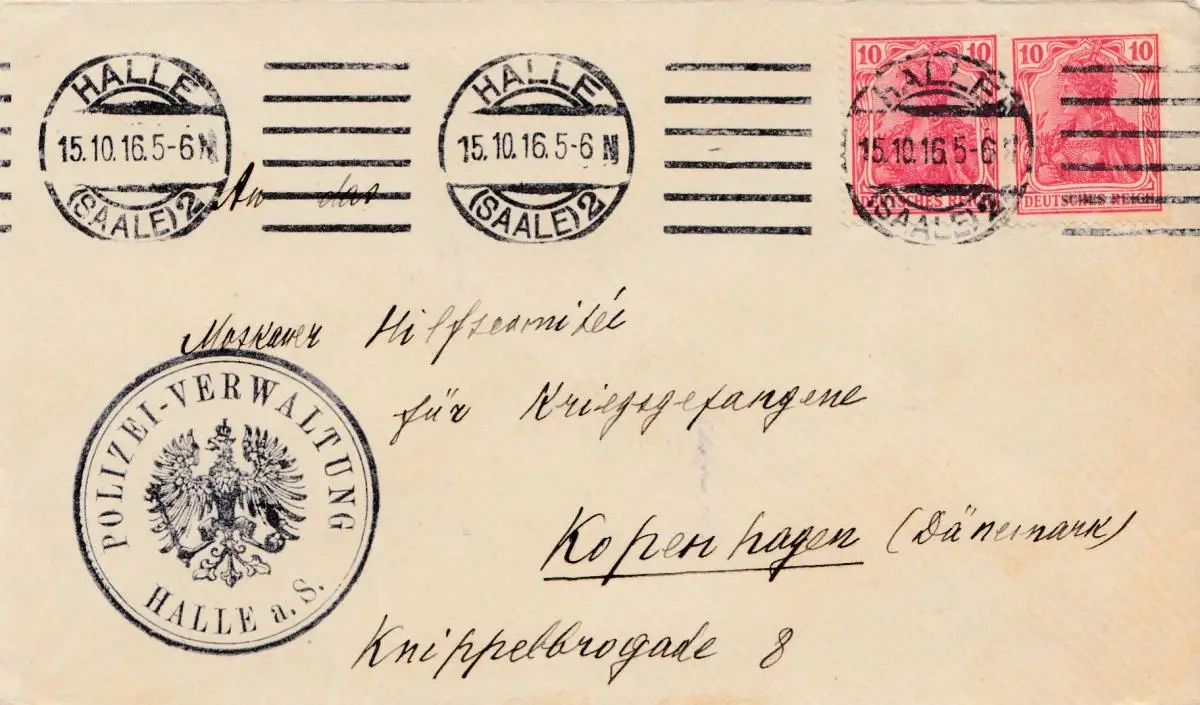 HALLE
15.10.16.5-6 N
(SAALE) 2
HALLE
15.10.16.5-6 N
(SAALE) 2
HALLE
15.10.16.5-6 N
(SAALE) 2
10 10
DEUTSCHES REICH
10 10
DEUTSCHES REICH
An das
Moskauer Hilfscomitéé
für Kriegsgefangene
Kopenhagen (Dänemark)
Knippelbrogade 8
POLIZEI-VERWALTUNG
HALLE a. S.